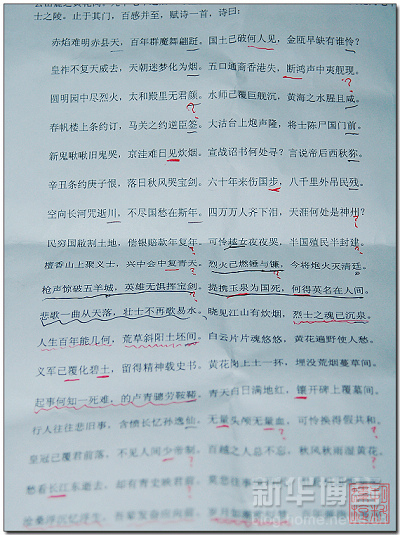 士之陵。止于其门，百感并至，赋诗一首，诗曰：
赤焰难明赤县天，百年群魔舞翩跹。国土已破何人见，金瓯早缺有谁怜？
皇祚不复天威去，天朝迷梦化为烟。五口通商香港失，断鸿声中夷舰现。
圆明园中尽烈火，太和殿里无君颜。水师已覆巨舰沉，黄海之水腥且咸。
春帆楼上条约订，马关之约逆臣签。大沽台上炮声隆，将士陈尸国门前。
新鬼啾啾旧鬼哭，京洼难日见炊烟。宣战诏书何处寻？言说帝后西秋狝。
辛丑条约庚子恨，落日秋风哭宝剑。六十年来伤国步，八千里外吊民残。
空向长河咒逝川，不尽国愁在斯年。四万万人齐下泪，天涯何处是神州？
民穷国敝割土地，偿银赔款年复年。可怜嫠女夜夜哭，半国殖民半封建。
檀香山上聚义士，兴中会中复青天。烈火已燃锤与镰，今将炮火灭清廷。
枪声惊破五羊城，英雄无惧挥宝剑。提携玉泉为国死，何得英名在人间。
悲歌一曲从天落，壮士不再歌易水。晓见江山有炊烟，烈士之魂已沉泉。
人生百年能几何，荒草斜阳土坯间。白云片片魂悠悠，黄花遍野使人愁。
义军已覆化碧土，留得精神载史书。黄花岗上土一抔，埋没荒烟蔓草间。
起事何知一死难，的卢青骢劳鞍鞯。青天白日满地红，镶开碑上覆墓间。
行人往往悲旧事，含愤长忆孙逸仙。无量头颅无量血，可怜换得假共和。
皇冠已覆君前落，不见人间少帝制。百越之人总不忘，秋风秋雨湿黄花。
愁看长江东逝去，却有青史映君前。
新华博客